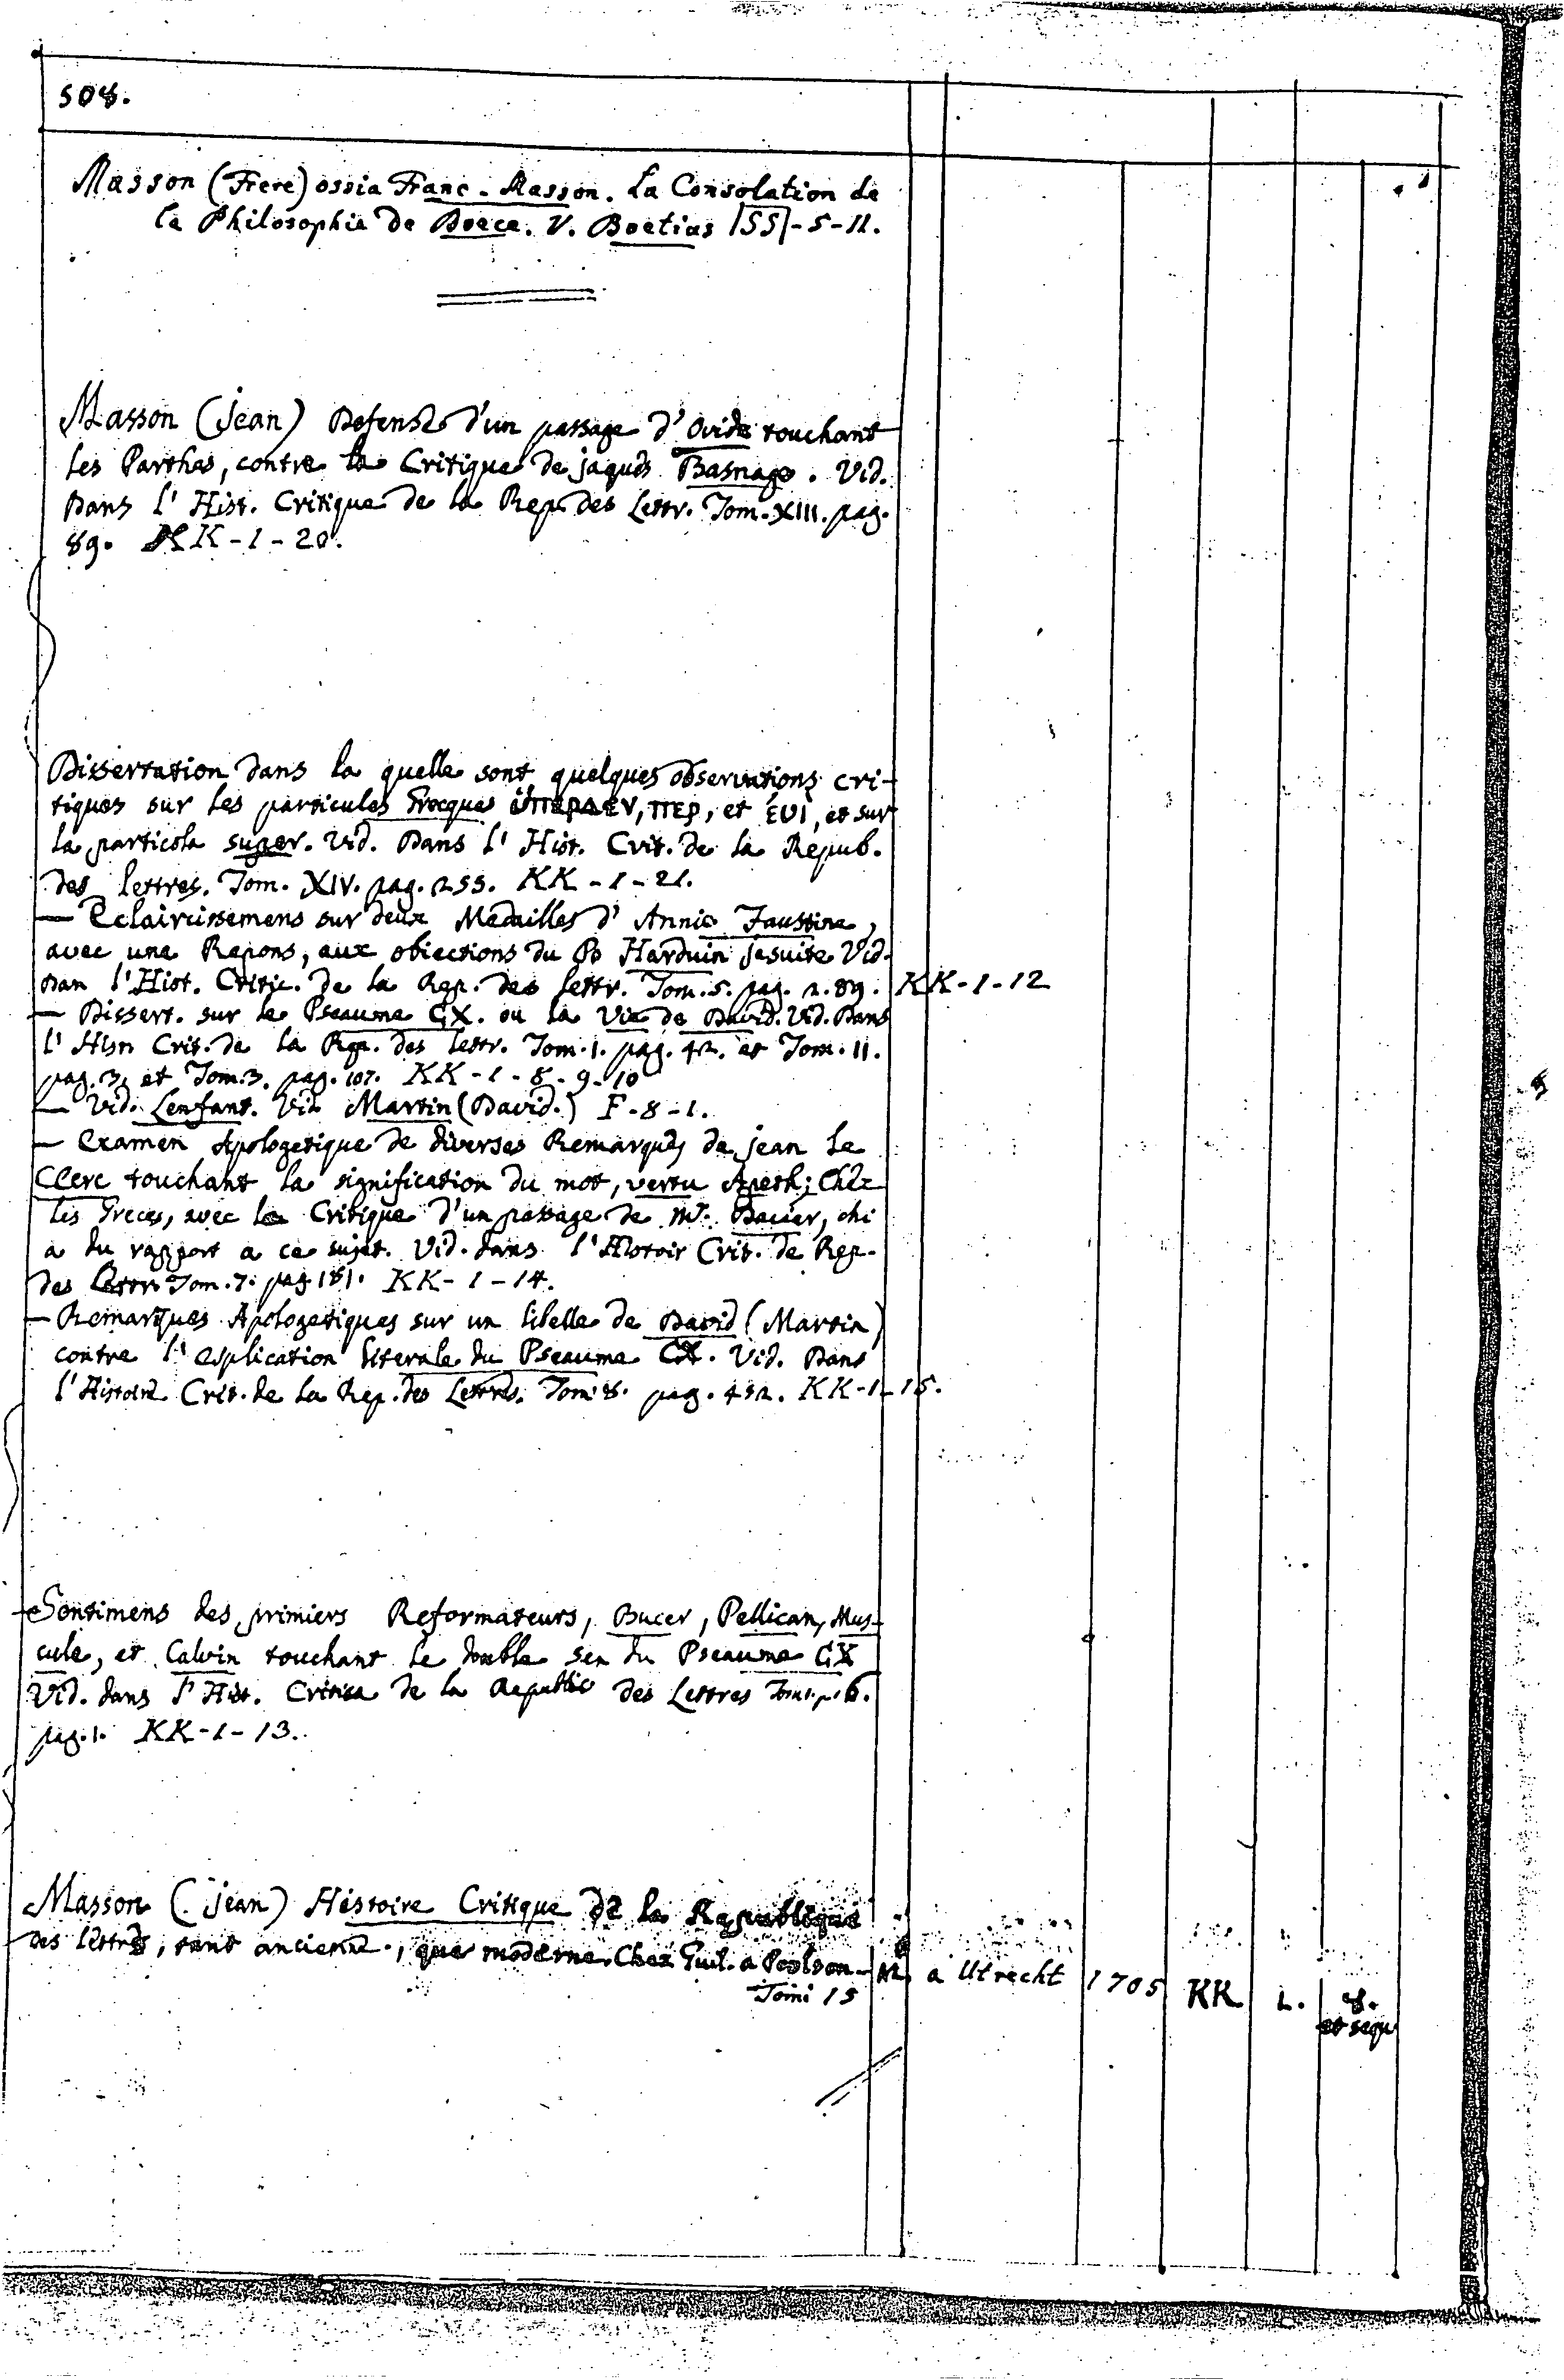 508.
Masson (Frere) ossia Franc-Masson. La Consolation de
la Philosophie de Boece. V. Boetius |SS|-5-11.
Masson (jean) Defense d'un passage d'Ovide touchant
les Parthes, contre la Critique de jaques Basnage. Vid.
Dans l'Hist. Critique de la Rep. des Lettr. Tom. XIII. pag.
89. KK-1-20.
Dissertation dans la quelle sont quelques observations cri-
tiques sur les particules Grecques ὑπερ, et sur
la particola super. Vid. Dans l'Hist. Crit. de la Repub.
des lettres. Tom. XIV. pag. 255. KK-1-21.
— Eclaircissemens sur deux Medailles d'Annie Faustine,
avec une Repons, aux obiections du P. Harduin jesuite Vid.
Dan l'Hist. Critic. de la Rep. des lettr. Tom. 5. pag. 289. KK-1-12
— Dissert. sur le Pseaume CX. ou la Vie de David. Vid. Dans
l'Histr Crit. de la Rep. des lettr. Tom. 1. pag. 42. et Tom. 11.
pag. 3, et Tom. 3. pag. 107. KK-1-8-9-10
— Vid. Lenfant. Vid Martin (David.) F-8-1.
— Examen Apologetique de diverses Remarques de jean Le
Clerc touchant la signification du mot, vertu Chez
les Greces, avec la Critique d'un passage de Mr. Dacier, chi
a du rapport a ce sujet. Vid. dans l'Histoir Crit. de Rep.
des Lettr. Tom. 7. pag 181. KK-1-14.
— Remarques Apologetiques sur un libelle de David (Martin)
contre l'esplication literale du Pseaume CX. Vid. Dans
l'Histoire Crit. de la Rep. des Lettres. Tom. 8. pag. 432. KK-1-15.
— Sentimens des primiers Reformateurs, Bucer, Pellican, Mus-
cule, et Calvin touchant le double sen du Pseaume CX
Vid. dans l'Hist. Critica de la Republic des Lettres Tom. 6.
pag. 1. KK-1-13.
Masson (jean) Histoire Critique de la Republique
des lettres, tant ancienne, que moderne. Chez Guil. a Poolson 12 a Utrecht 1705 KK 1. 8.
Tomi 15 et sequ